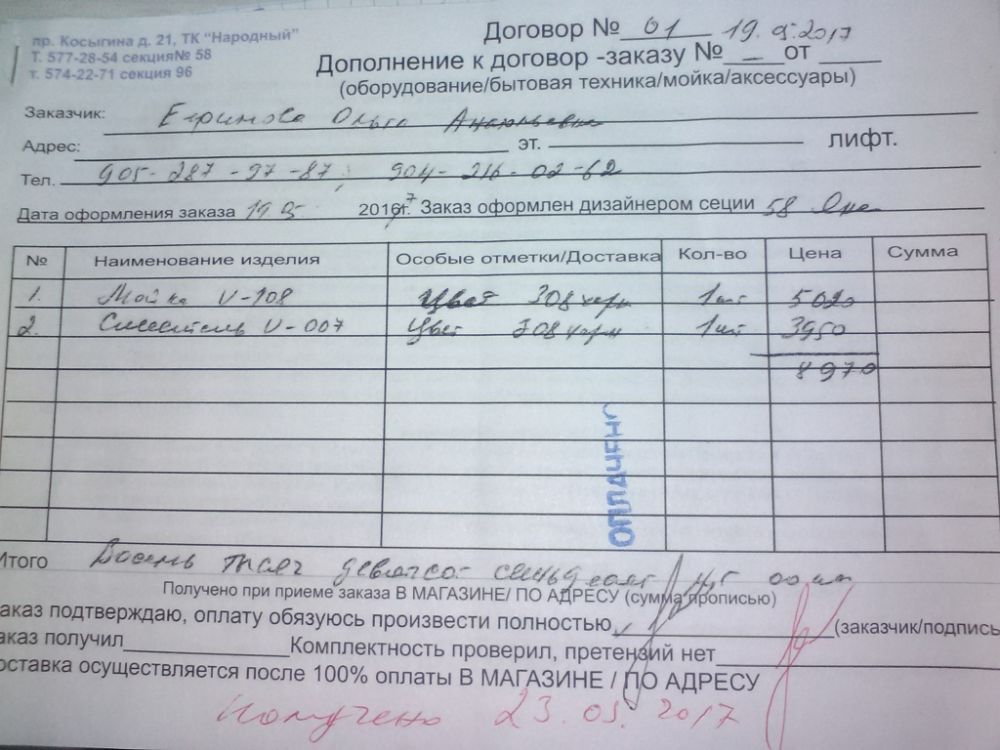 пр. Косыгина д. 21, ТК "Народный"
Т. 577-28-54 секция№ 58
т. 574-22-71 секция 96
Договор № 01 19.5.2017
Дополнение к договор -заказу №__от
(оборудование/бытовая техника/мойка/аксессуары)
Заказчик: Ольга
Адрес: эт. лифт.
Тел. 905-287-97-87; 904-216-02-62
Дата оформления заказа 19 5 2017г. Заказ оформлен дизайнером сеции 58
№ Наименование изделия Особые отметки/Доставка Кол-во Цена Сумма
1. Мойка U-108 Цвет 308 черн 1шт 5020
2. Смеситель U-007 Цвет 308 черн 1шт 3950
8970
ОПЛАЧЕНО
Итого Восемь тысяч девятсот семьдесят руб 00 коп
Получено при приеме заказа В МАГАЗИНЕ/ ПО АДРЕСУ (сумма прописью)
аказ подтверждаю, оплату обязуюсь произвести полностью (заказчик/подпись
аказ получил Комплектность проверил, претензий нет
оставка осуществляется после 100% оплаты В МАГАЗИНЕ / ПО АДРЕСУ
Получено 23.05.2017